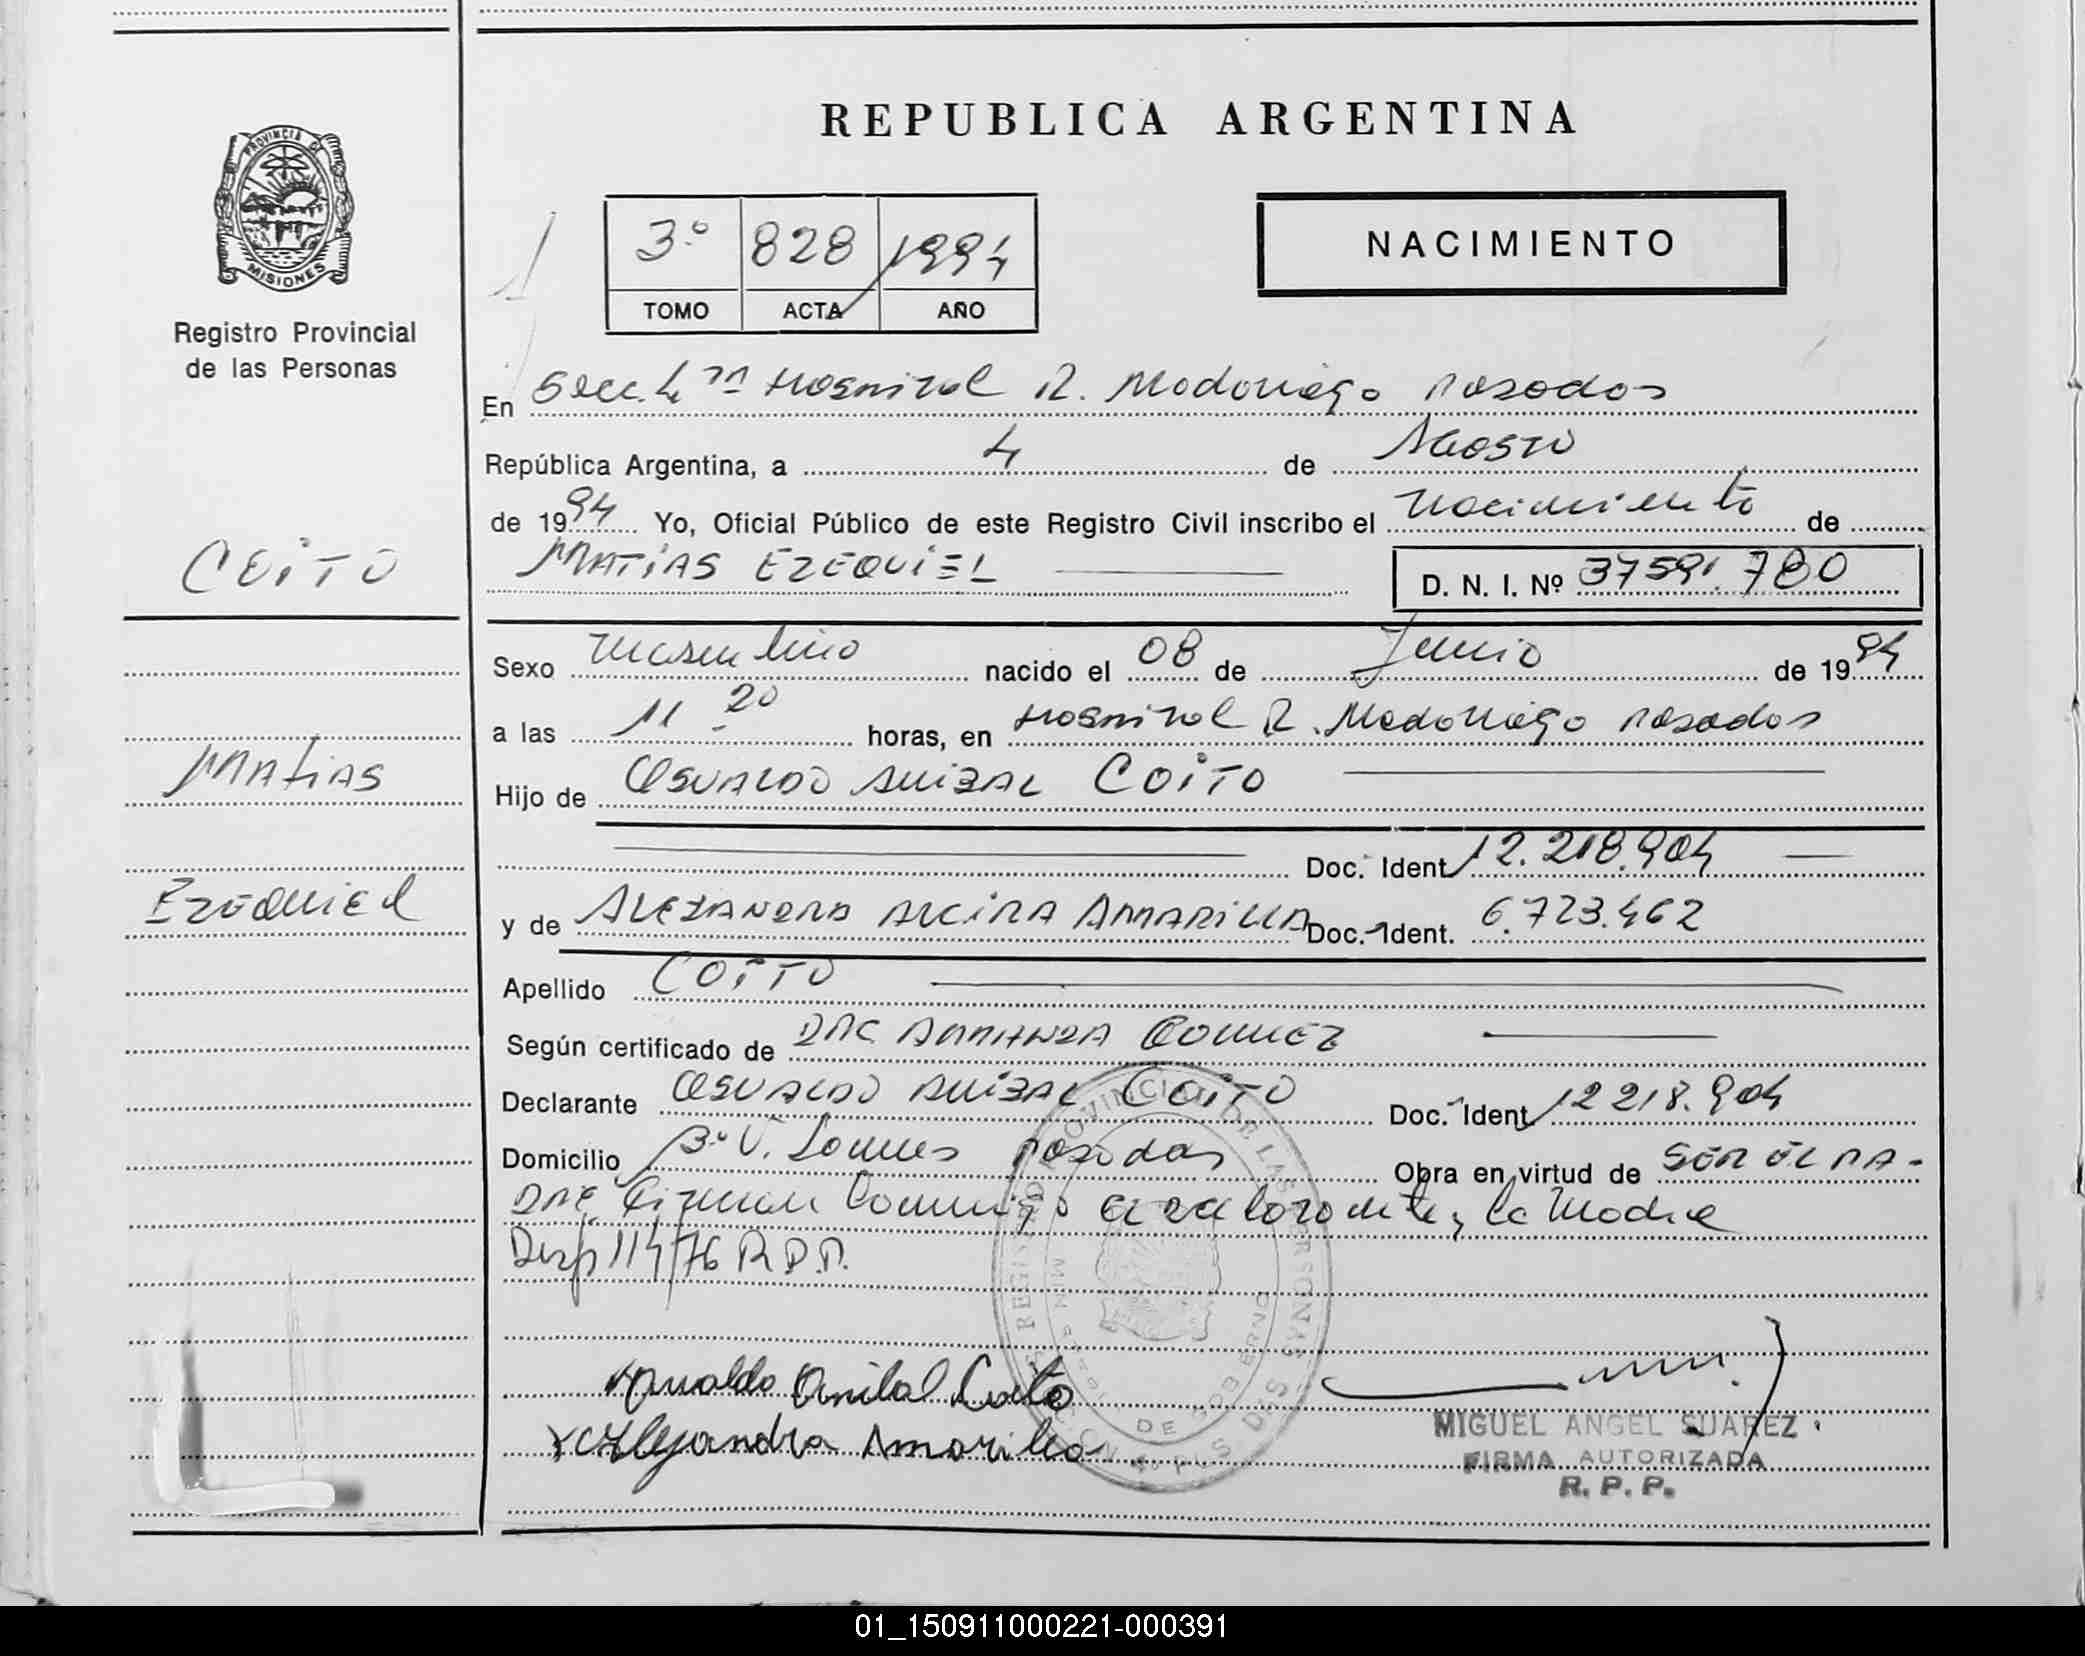 REPUBLICA ARGENTINA
PROVINCIA DE
MISIONES
Registro Provincial
de las Personas
3º 828 1994
TOMO ACTA AÑO
NACIMIENTO
En Secc. 4ª Hospital R. Madariaga Posadas
República Argentina, a 4 de Agosto
de 1994 Yo, Oficial Público de este Registro Civil inscribo el Nacimiento de
COITO
MATIAS EZEQUIEL D. N. I. Nº 37591.780
Sexo Masculino nacido el 08 de Junio de 1994
a las 11 20 horas, en Hospital R. Madariaga Posadas
MATIAS
Hijo de OSVALDO ANIBAL COITO
Doc. Ident 12.218.904
EZEQUIEL
y de ALEJANDRA ALCIRA AMARILLA Doc. Ident. 6.723.462
Apellido COITO
Según certificado de GOMEZ
Declarante OSVALDO ANIBAL COITO Doc. Ident 12218.904
Domicilio Bº V. Posadas Obra en virtud de SER EL PA-
DRE Firman Conmigo el declarante y la Madre
Disp 114/76 R.P.P.
REGISTRO PROVINCIAL DE LAS PERSONAS
MINISTERIO DE GOBIERNO
Osvaldo Anibal Coito
Alejandra Amarilla
MIGUEL ANGEL SUAREZ
FIRMA AUTORIZADA
R. P. P.
01_150911000221-000391